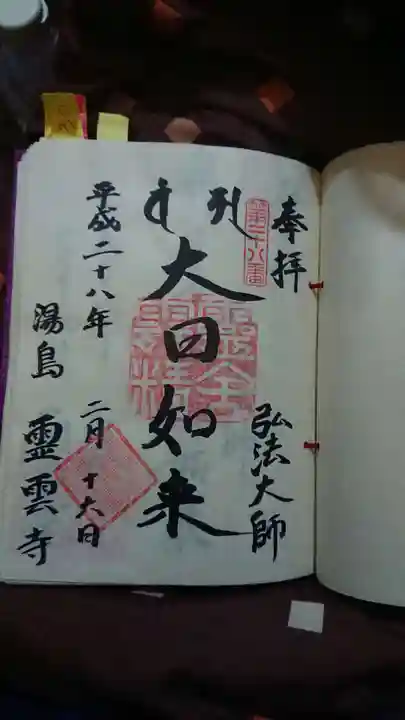 奉拝
第二十八番
弘法大師
大日如来
平成二十八年 二月 十六日
湯島 霊雲寺